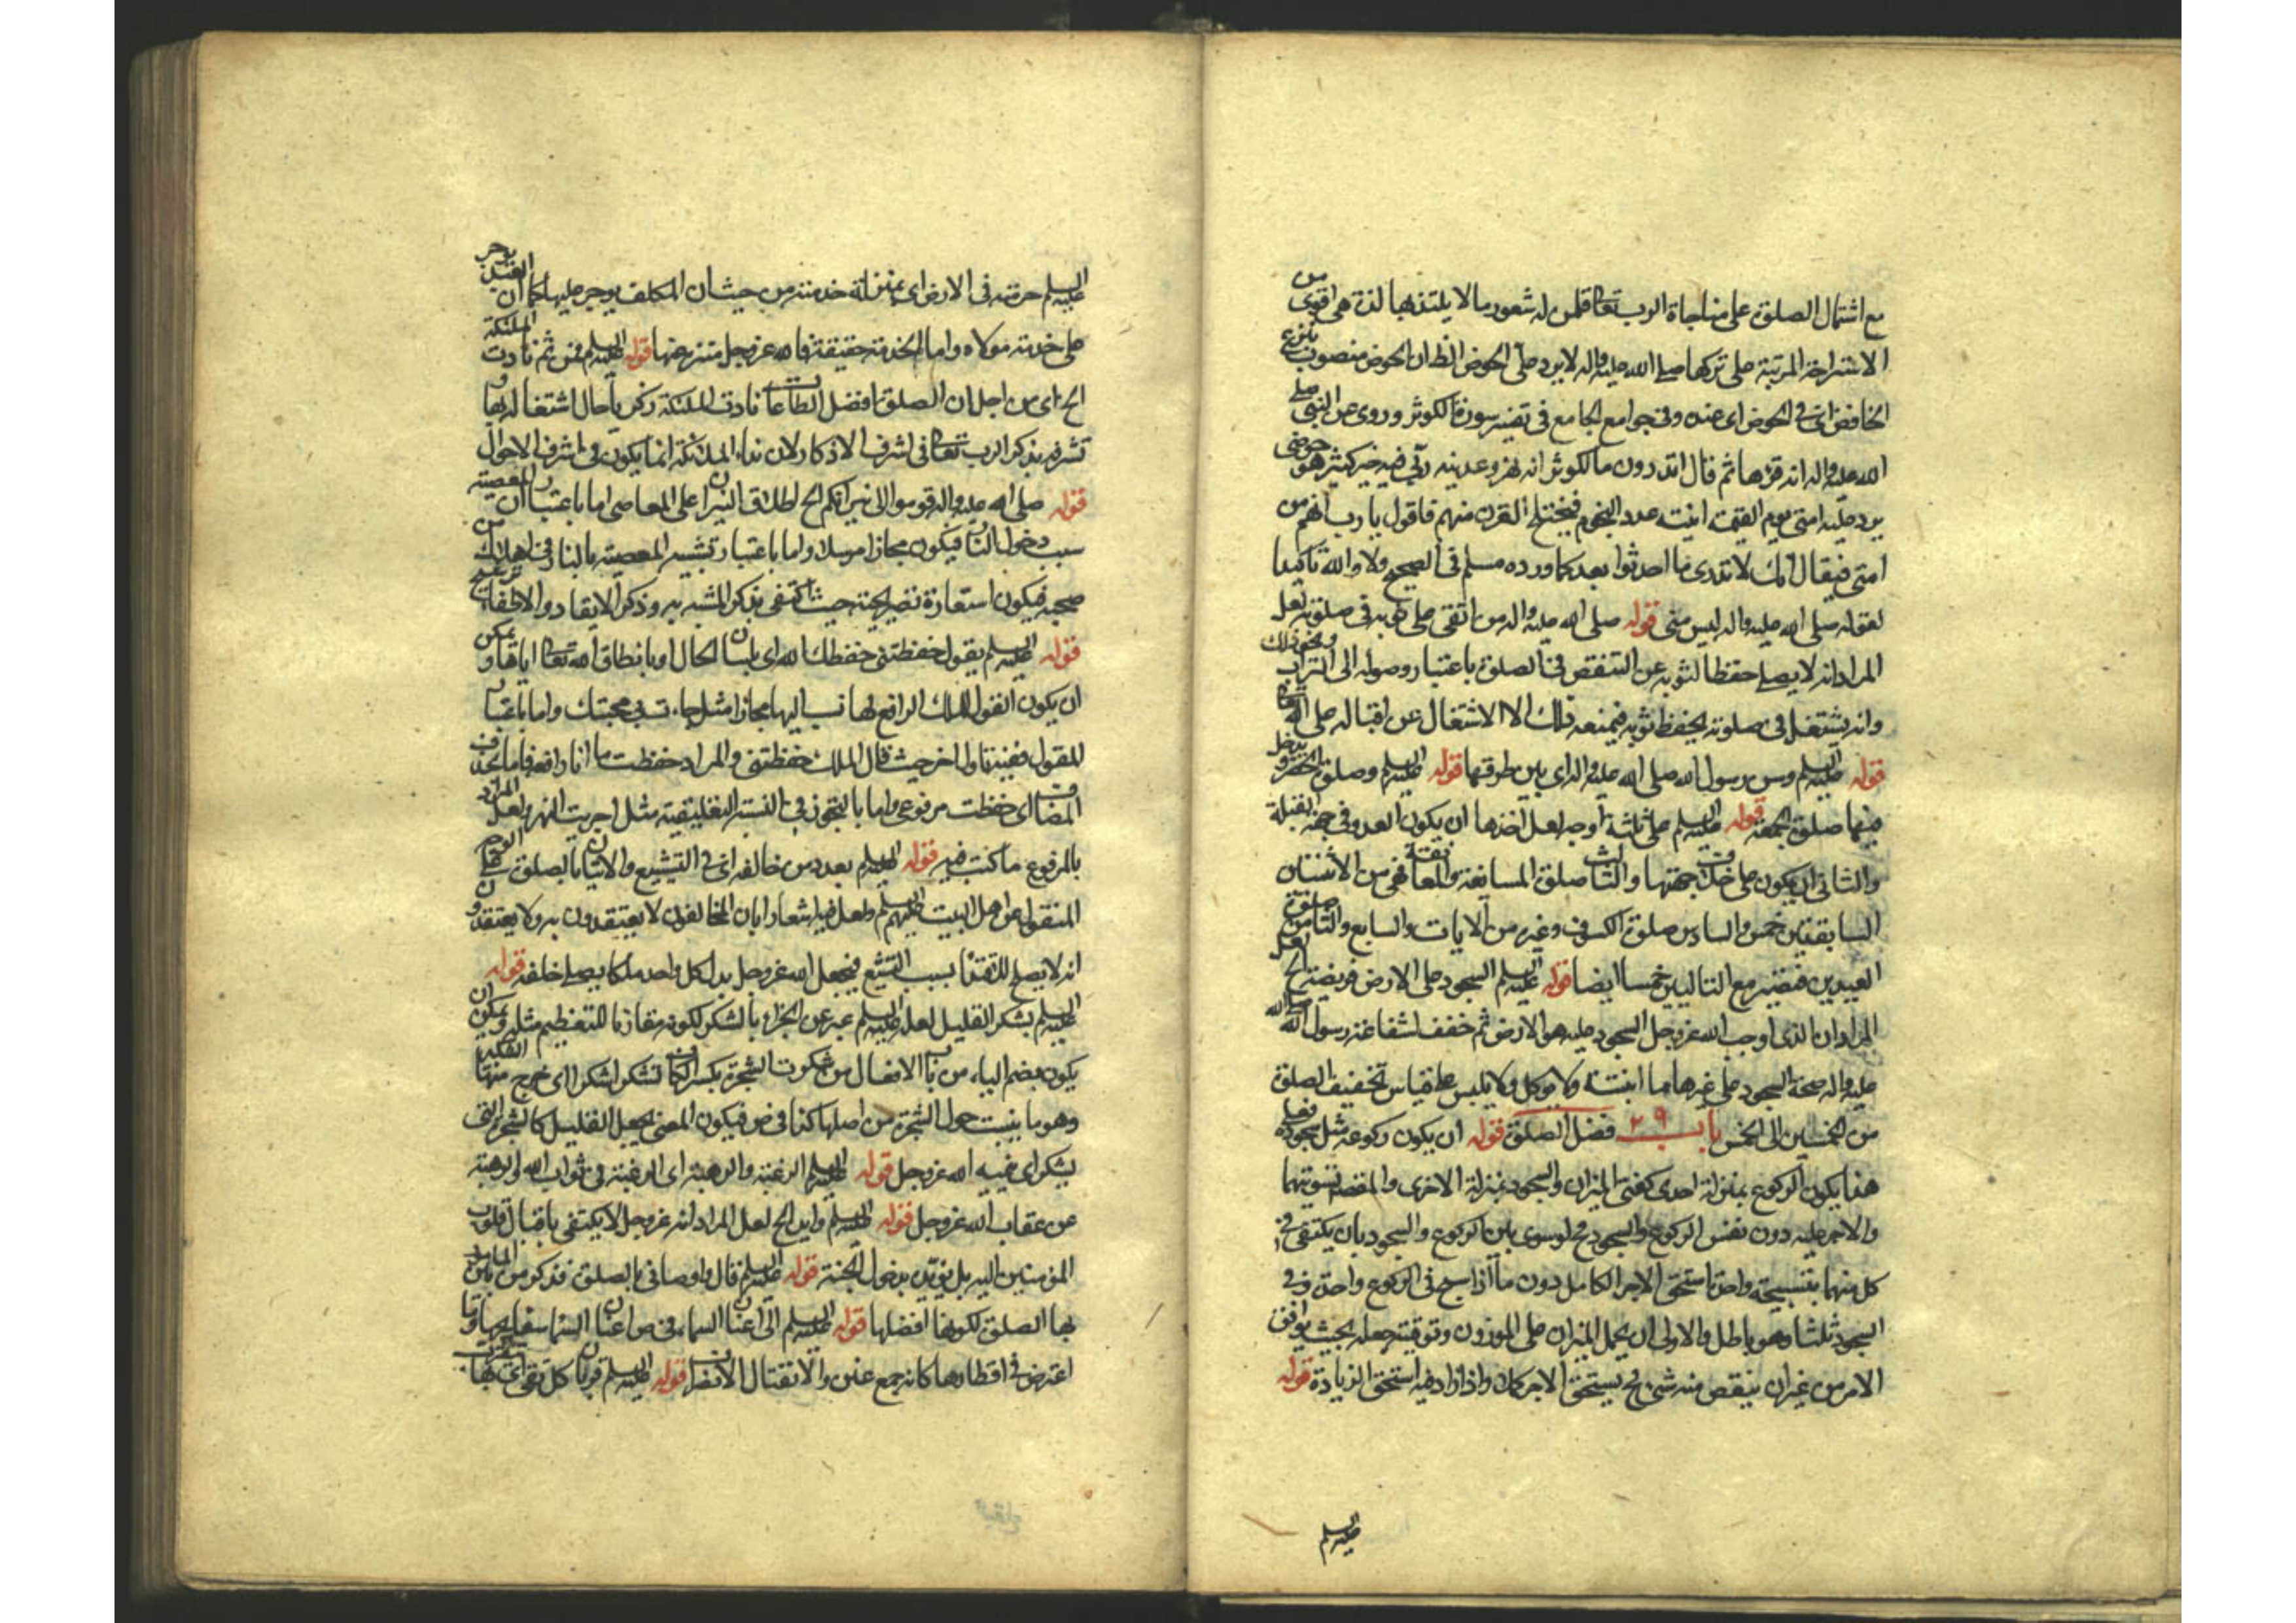 مع اشتمال الصلوة على مناجاة الرب تعالى قلمن له شعور ما لا يلتذ بها لذة هى اقوى من
الاستراحة المرتبة على تركها صلى الله عليه واله لا يرد على الحوض الظ ان الحوض منصوب بنزع
الخافض اى فى الحوض اى عنده وفى جوامع الجامع فى تفسير سورة الكوثر وروى عن النبى صلى
الله عليه واله انه قرءها ثم قال اتدرون ما الكوثر انه نهر وعدنيه ربى فيه خير كثير هو حوضى
يرد عليه امتى يوم القيمة انيته عدد النجوم فيختلج القرن منهم فاقول يا رب انهم من
امتى فيقال انك لا تدرى ما احدثوا بعدك اورده مسلم فى الصحيح ولا والله تاكيدا
لقوله صلى الله عليه واله ليس منى قوله صلى الله عليه واله من اتقى على ثوبه فى صلوته لعل
المراد انه لا يصلى حفظا لثوبه عن التنقص فى الصلوة باعتبار وصوله الى التراب ونحو ذلك
وانه يشتغل فى صلوته بحفظ ثوبه فيمنعه ذلك الاشتغال عن اقباله على الله تعالى
قوله عليه السلم وسن رسول الله صلى الله عليه واله اى بين طرقتها قوله عليه السلم وصلوة الحضر ويدخل
فيها صلوة الجمعة قوله عليه السلم على ثلثة اوجه لعل احدها ان يكون العدو فى جهة القبلة
والثانى ان يكون على خلاف جهتها والثالث صلوة المسايفة والمعانقة فهى من الاثنتان
السابقتين خمس والسادس صلوة الكسوف وغيره من الايات والسابع والثامن صلوة
العيدين فتصير مع التاليين خمسا ايضا قوله عليه السلم السجود على الارض فريضة الخ لعل
المراد ان الذى اوجب الله عز وجل السجود عليه هو الارض ثم خفف لشفاعة رسول الله صلى الله
عليه واله صحة السجود على غيرها مما انبتته ولا يوكل ولا يلبس على قياس تخفيف الصلوة
من الخمسين الى الخمس باب ٢٩ فضل الصلوة قوله ان يكون ركوعه مثل سجوده فعلى
هذا يكون الركوع بمنزلة احدى كفتى الميزان والسجود بمنزلة الاخرى والمقصد تسويتهما
والاجر عليه دون نفس الركوع والسجود فح لو سوى بين الركوع والسجود بان يكتفى فى
كل منهما بتسبيحة واحدة استحق الاجر الكامل دون ما اذا سبح فى الركوع واحدة وفى
السجود ثلثا وهو باطل فالاولى ان يحمل الميزان على الموزون وتوفيته جعله بحيث يوافق
الامر من غير ان ينقص منه شئ فح يستحق الاجر كملا واذا زاد فيه استحق الزيادة قوله
عليه السلم
عليه السلم خدمته فى الارض اى بمنزلة خدمته من حيث ان المكلف يوجر عليها كما ان العبد يوجر
على خدمته مولاه واما الخدمة حقيقة فالله عز وجل متنزه عنها قوله عليه السلم فمن ثم نادت الملئكة
الخ اى من اجل ان الصلوة افضل الطاعات نادت الملئكة زكريا حال اشتغاله بها و
تشرفه بذكر الرب تعالى فى اشرف الاذكار لان نداء الملائكة انما يكون فى اشرف الاحوال
قوله صلى الله عليه واله قوموا الى نيرانكم الخ اطلاق النيران على المعاصى اما باعتبار ان المعصية
سبب دخول النار فيكون مجازا مرسلا واما باعتبار تشبيه المعصية بالنار فى اهلاك من
صحبه فيكون استعارة تصريحية حيث اكتفى بذكر المشبه به وذكر الايقاد والاطفاء ترشيح
قوله عليه السلم يقول حفظتنى حفظك الله اى بلسان الحال او بانطاق الله تعالى اياها ويمكن
ان يكون القول للملك الرافع لها نسب اليها مجازا مثل جاءت بى محبتك واما باعتبار
المقول فعينه تاول اخر حيث قال الملك حفظتنى والمراد حفظت ما انا رافعه فاما بحذف
المضاف اى حفظت مرفوعى واما بالتجوز فى النسبة التعليقية مثل اجريت النهر ولعل المراد
بالمرفوع ما كتب فيه قوله عليه السلم بعدد من خالفه اى فى التشيع والاتيان بالصلوة على الوجه
المنقول عن اهل البيت عليهم السلم ولعل فيه اشعارا بان المخالفون لا يعتقدون به ولا يقتدون و
انه لا يصلى للتقدم بسبب التشيع فيجعل الله عز وجل بدل كل واحد ملكا يصلى خلفه قوله
عليه السلم يشكر القليل لعله عليه السلم عبر عن الجزاء بالشكر لكونه مقارنا للتعظيم مثله ويمكن ان
يكون بضم الياء من باب الافعال من شكرت الشجرة بكسر الكاف تشكر شكرا اى خرج منها الشكير
وهو ما ينبت حول الشجرة من اصلها كذا فى ض فيكون المعنى يجعل القليل كالشجر التى
يشكر اى ينميه الله عز وجل قوله عليه السلم الرغبة والرهبة اى الرغبة فى ثواب الله والرهبة
عن عقاب الله عز وجل قوله عليه السلم وايده الخ لعل المراد انه عز وجل لا يكتفى باقبال قلوب
المؤمنين اليه بل يؤيده بدخول الجنة قوله عليه السلم قال واوصانى بالصلوة فذكر من بين المامور
بها الصلوة لكونها افضلها قوله عليه السلم الى اعنان السماء فى ص اعنان السماء صفايحها وما
اعترض فى اقطارها كانه جمع عنن والانفتال الانصراف قوله عليه السلم قربان كل تقى اى يتقرب بها